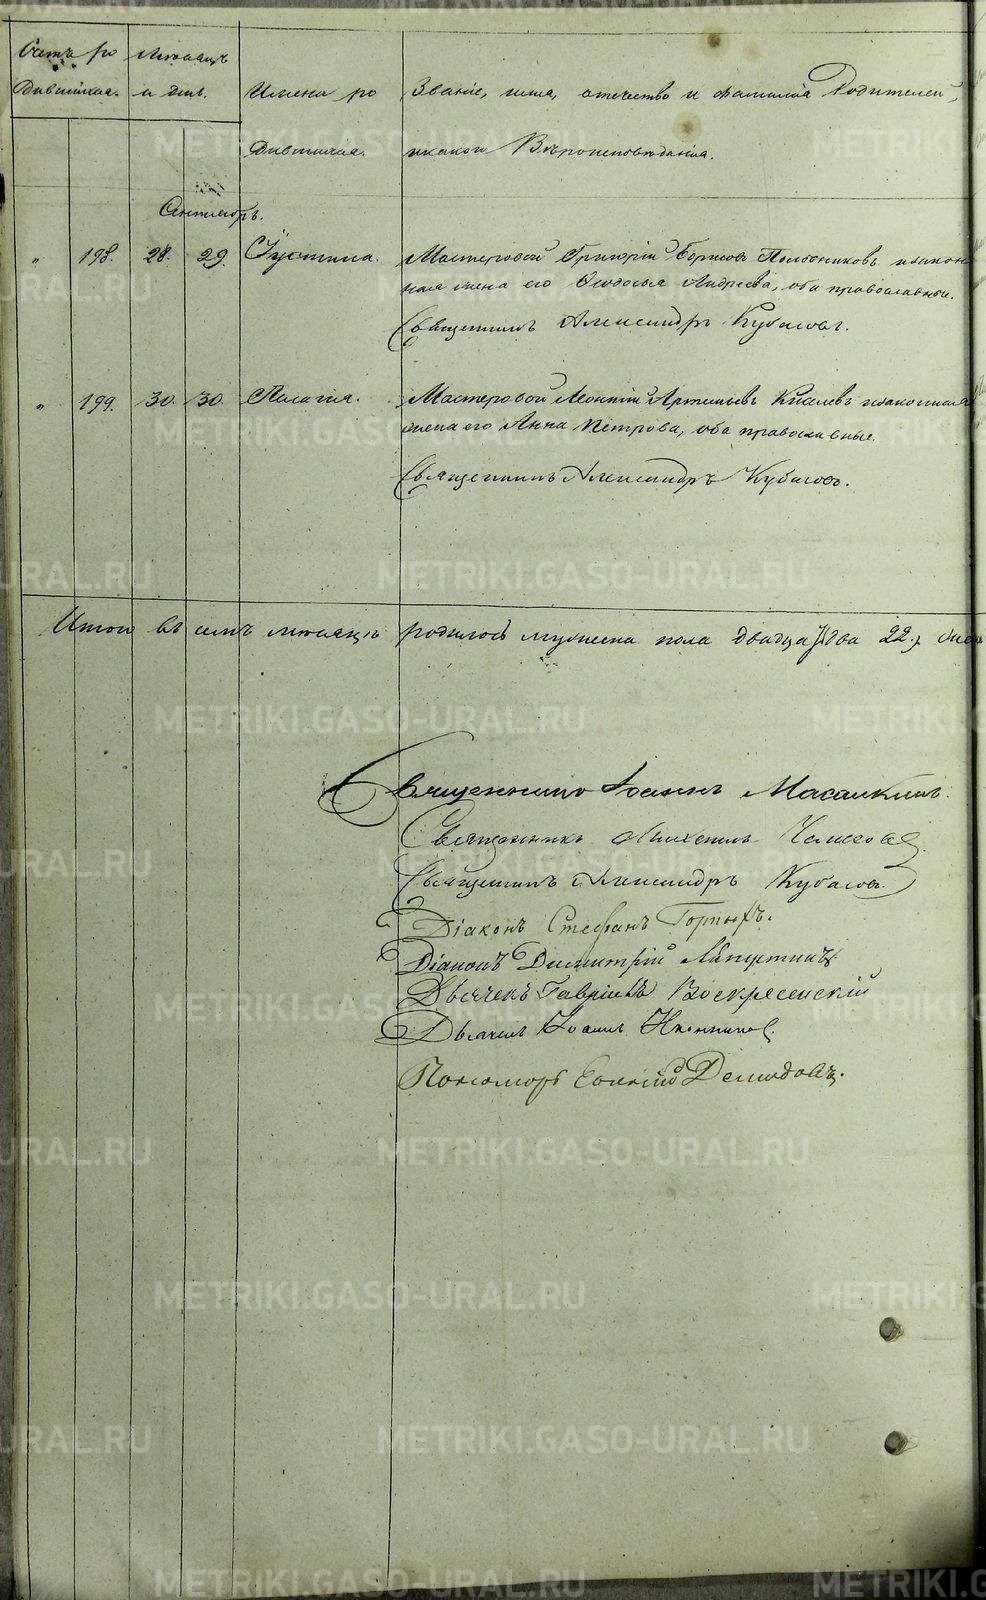 Счетъ ро
дившихся.
Мѣсяцъ
и день.
Имена ро
дившихся.
Званіе, имя, отечество и фамилія Родителей,
и какого Вѣроисповѣданія.
Сентябрь.
" 198. 28. 29. Іустина. Мастеровой Григорій Борисовъ и закон
ная жена его Ѳеодосья Андреева, оба православные.
Священникъ Александръ Кубасовъ.
" 199. 30. 30. Пелагія. Мастеровой Леонтій Артемьевъ Киселевъ и законная
жена его Анна Петрова, оба православные.
Священникъ Александръ Кубасовъ.
Итого въ семъ мѣсяцѣ родилось мужеска пола двадцать два 22,
Священникъ Іоаннъ
Священникъ Михаилъ
Священникъ Александръ Кубасовъ.
Діаконъ Стефанъ Горныхъ.
Діаконъ Димитрій
Дьячекъ Гавріилъ Воскресенскій
Дьячекъ Іоаннъ Иконниковъ.
Пономарь Евгеній Демидовъ.
METRIKI.GASO-URAL.RU